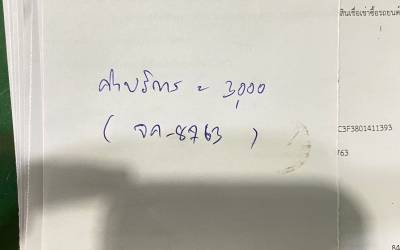 สินเชื่อเช่าซื้อรถยนต์
ค่าบริการ = 3,000
( จค-8763 )
C3F3801411393
763
84